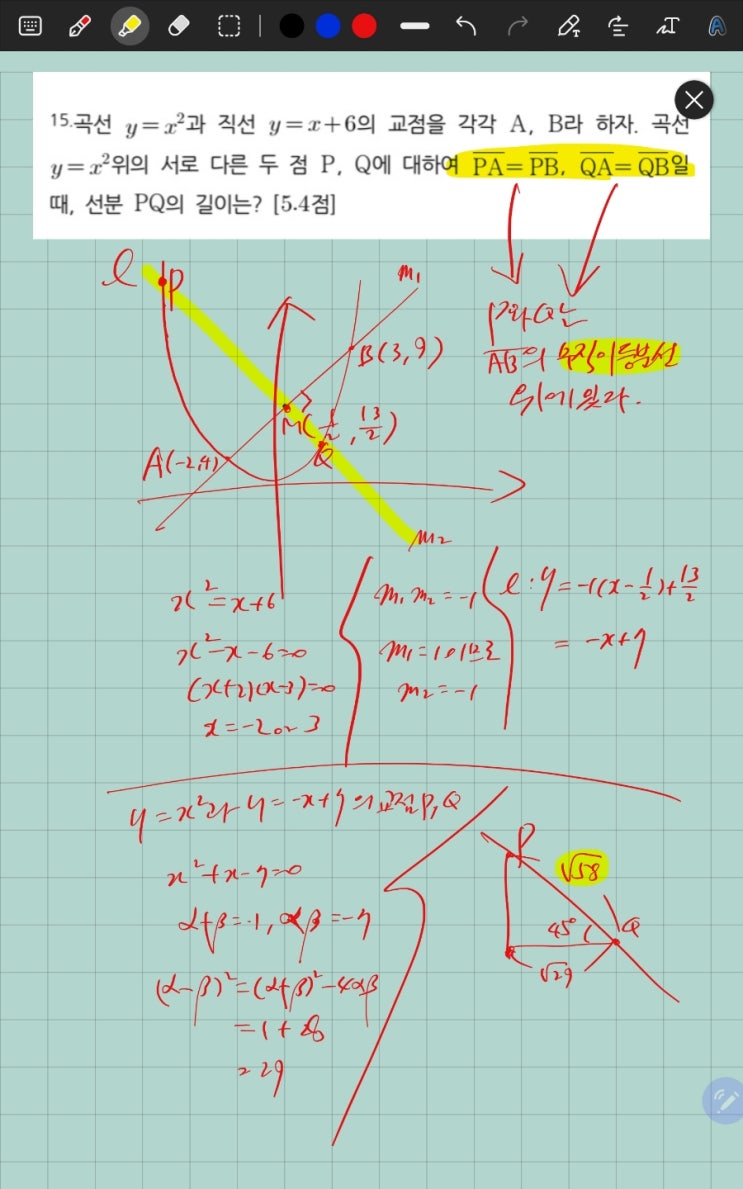 15.곡선 y=x²과 직선 y=x+6의 교점을 각각 A, B라 하자. 곡선
y=x²위의 서로 다른 두 점 P, Q에 대하여 \overline{PA}=\overline{PB}, \overline{QA}=\overline{QB}일
때, 선분 PQ의 길이는? [5.4점]
l
P
m₁
B(3,9)
M(1/2, 13/2)
Q
A(-2,4)
m₂
P와 Q는
\overline{AB}의 수직이등분선
위에 있다.
x²=x+6
x²-x-6=0
(x+2)(x-3)=0
x=-2 or 3
m₁m₂=-1
m₁=1이므로
m₂=-1
l:y=-1(x-1/2)+13/2
=-x+7
y=x²과 y=-x+7의 교점 P, Q
x²+x-7=0
α+β=-1, αβ=-7
(α-β)²=(α+β)²-4αβ
=1+28
=29
P
√58
45°
Q
√29